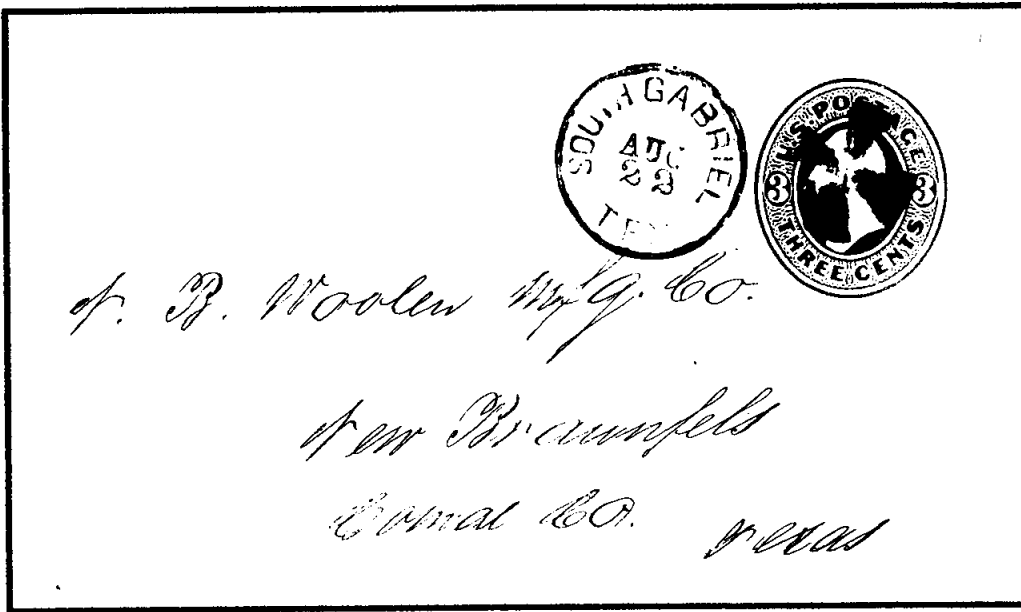 SOUTH GABRIEL
AUG
22
TEX
U.S. POSTAGE
3 3
THREE CENTS
N. B. Woolen Mf'g. Co.
New Braunfels
Comal Co. Texas